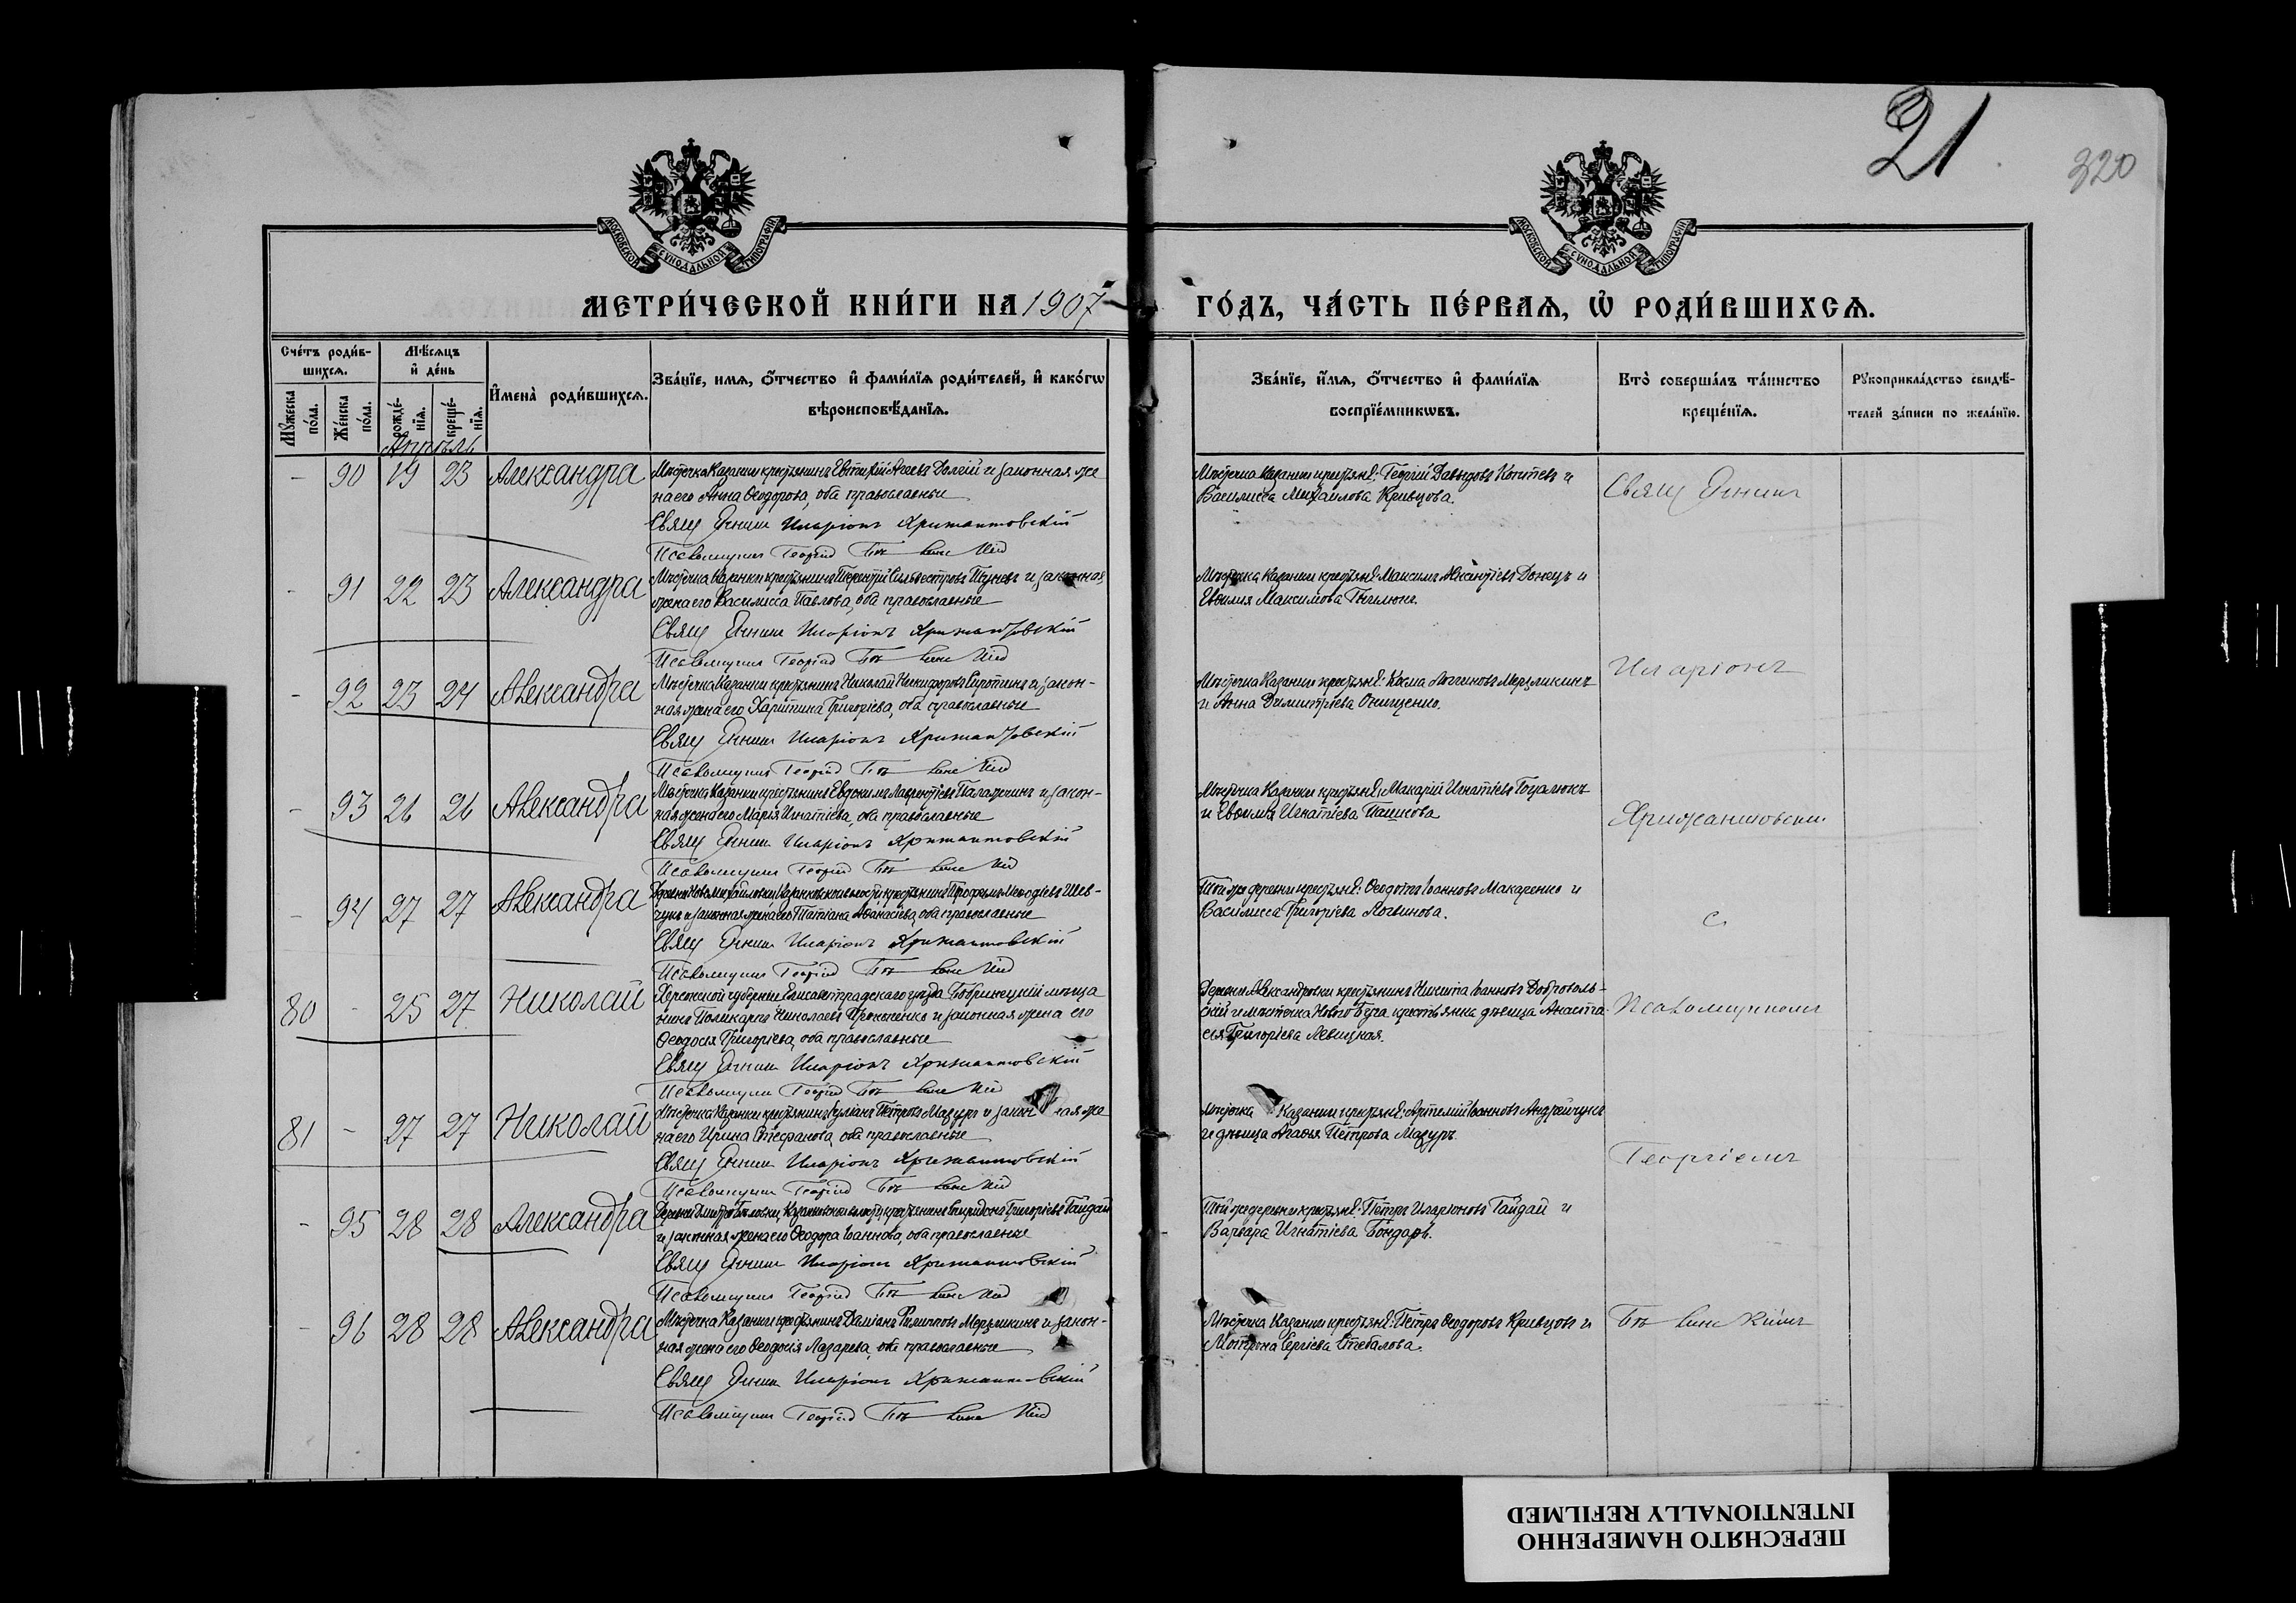 21
320
МОСКОВСКОЙ СѴНОДАЛЬНОЙ ТИПОГРАФІИ
МОСКОВСКОЙ СѴНОДАЛЬНОЙ ТИПОГРАФІИ
МЕТРИ́ЧЕСКОЙ КНИ́ГИ НА 1907 ГО́ДЪ, ЧА́СТЬ ПЕ́РВАѦ, Ѡ҆ РОДИ́ВШИХСѦ.
Сче́тъ роди́в-
шихсѧ.
Мꙋ́жеска по́ла.
Же́нска по́ла.
Мѣ́сѧцъ
и҆ де́нь
рожде́-
нїѧ.
креще́-
нїѧ.
И҆мена̀ роди́вшихсѧ.
Зва́нїе, и҆мѧ, ѻ҆́тчество и҆ фами́лїѧ роди́телей, и҆ како́гѡ
вѣроисповѣ́данїѧ.
Зва́нїе, и҆́мѧ, ѻ҆́тчество и҆ фами́лїѧ
воспрїе́мникѡвъ.
Кто̀ соверша́лъ та́инство
креще́нїѧ.
Рꙋкоприкла́дство свидѣ́-
телей за́писи по жела́нїю.
Апрѣль
- 90 19 23 Александра
Мѣстечка Казанки крестьянинъ Евтихій Агеевъ Долгій и законная же
на его Анна Ѳеодорова, оба православные
Свящ Иларіонъ Крижантовскій
Псаломщикъ Георгій
Мѣстечка Казанки крестьяне: Георгій Давыдовъ и
Василисса Михаилова Кривцова.
- 91 22 23 Александра
Мѣстечка Казанки крестьянинъ Терентій Сильвестровъ и законная
жена его Василисса Павлова, оба православные
Свящ Иларіонъ Крижантовскій
Псаломщикъ Георгій
Мѣстечка Казанки крестьяне: Максимъ Донецъ и
Евѳимія Максимова
- 92 23 24 Александра
Мѣстечка Казанки крестьянинъ Николай Никифоровъ Сиротинъ и закон-
ная жена его Харитина Григоріева, оба православные
Свящ Иларіонъ Крижантовскій
Псаломщикъ Георгій
Мѣстечка Казанки крестьяне: Косма Логгиновъ Мерзликинъ
и Анна Димитріева Онищенко.
- 93 26 26 Александра
Мѣстечка Казанки крестьянинъ Евдокимъ Лаврентіевъ и закон-
ная жена его Марія Игнатіева, оба православные
Свящ Иларіонъ Крижантовскій
Псаломщикъ Георгій
Мѣстечка Казанки крестьяне: Макарій Игнатіевъ Гоцалюкъ
и Евѳимія Игнатіева Пашкова
- 94 27 27 Александра
Деревни Казанковской волости крестьянинъ Меѳодіевъ Шев-
чукъ и законная жена его Татіана Аѳанасіева, оба православные
Свящ Иларіонъ Крижантовскій
Псаломщикъ Георгій
Той же деревни крестьяне: Ѳеодотъ Іоанновъ Макаренко и
Василисса Григоріева Логвинова.
80 - 25 27 Николай
Херсонской губерніи Елисаветградскаго уѣзда Бобринецкій мѣща
нинъ Поликарпъ Николаевъ Прокопенко и законная жена его
Ѳеодосія Григоріева, оба православные
Свящ Иларіонъ Крижантовскій
Псаломщикъ Георгій
Деревни Александровки крестьянинъ Никита Іоанновъ Доброволь-
скій и мѣстечка Новаго Буга крестьянка дѣвица Анаста
сія Григоріева Левицкая.
81 - 27 27 Николай
Мѣстечка Казанки крестьянинъ Іуліанъ Петровъ Мазуръ и законная же
на его Ирина Стефанова, оба православные
Свящ Иларіонъ Крижантовскій
Псаломщикъ Георгій
Мѣстечка Казанки крестьяне: Артемій Іоанновъ Андрейчукъ
и дѣвица Агаѳія Петрова Мазуръ.
- 95 28 28 Александра
Деревни Казанковской волости, крестьянинъ Спиридонъ Григоріевъ Гайдай
и законная жена его Ѳеодора Іоаннова, оба православные
Свящ Иларіонъ Крижантовскій
Псаломщикъ Георгій
Той же деревни крестьяне: Петръ Иларіоновъ Гайдай и
Варвара Игнатіева Бондарь.
- 96 28 28 Александра
Мѣстечка Казанки крестьянинъ Даміанъ Филипповъ Мерзликинъ и закон-
ная жена его Ѳеодосія Лазарева, оба православные
Свящ Иларіонъ Крижантовскій
Псаломщикъ Георгій
Мѣстечка Казанки крестьяне: Петръ Ѳеодоровъ Кривцовъ и
Мотрона Сергіева Стебалова.
Свящ
Иларіонъ
Крижантовскій
с
Псаломщикомъ
Георгіемъ
ПЕРЕСНЯТО НАМЕРЕННО
INTENTIONALLY REFILMED